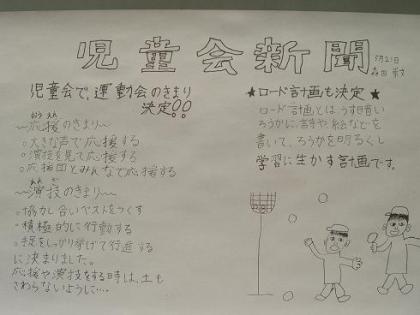 児童会新聞
5月21日
森田 崇文
児童会で、運動会のきまり
決定!!
～応援のきまり～
おう えん
○大きな声で応援する
○演技を見て応援する
○応援団とみんなで応援する
～演技のきまり～
えん ぎ
○協力し合いベストをつくす
・積極的に行動する
○手足をしっかり挙げて行進する
に決まりました。
応援や演技をする時は、土も
さわらないように…。
★ロード計画も決定★
ロード計画とは、うす暗い
ろうかに、詩や絵などを
書いて、ろうかを明るくし
学習に生かす計画です。